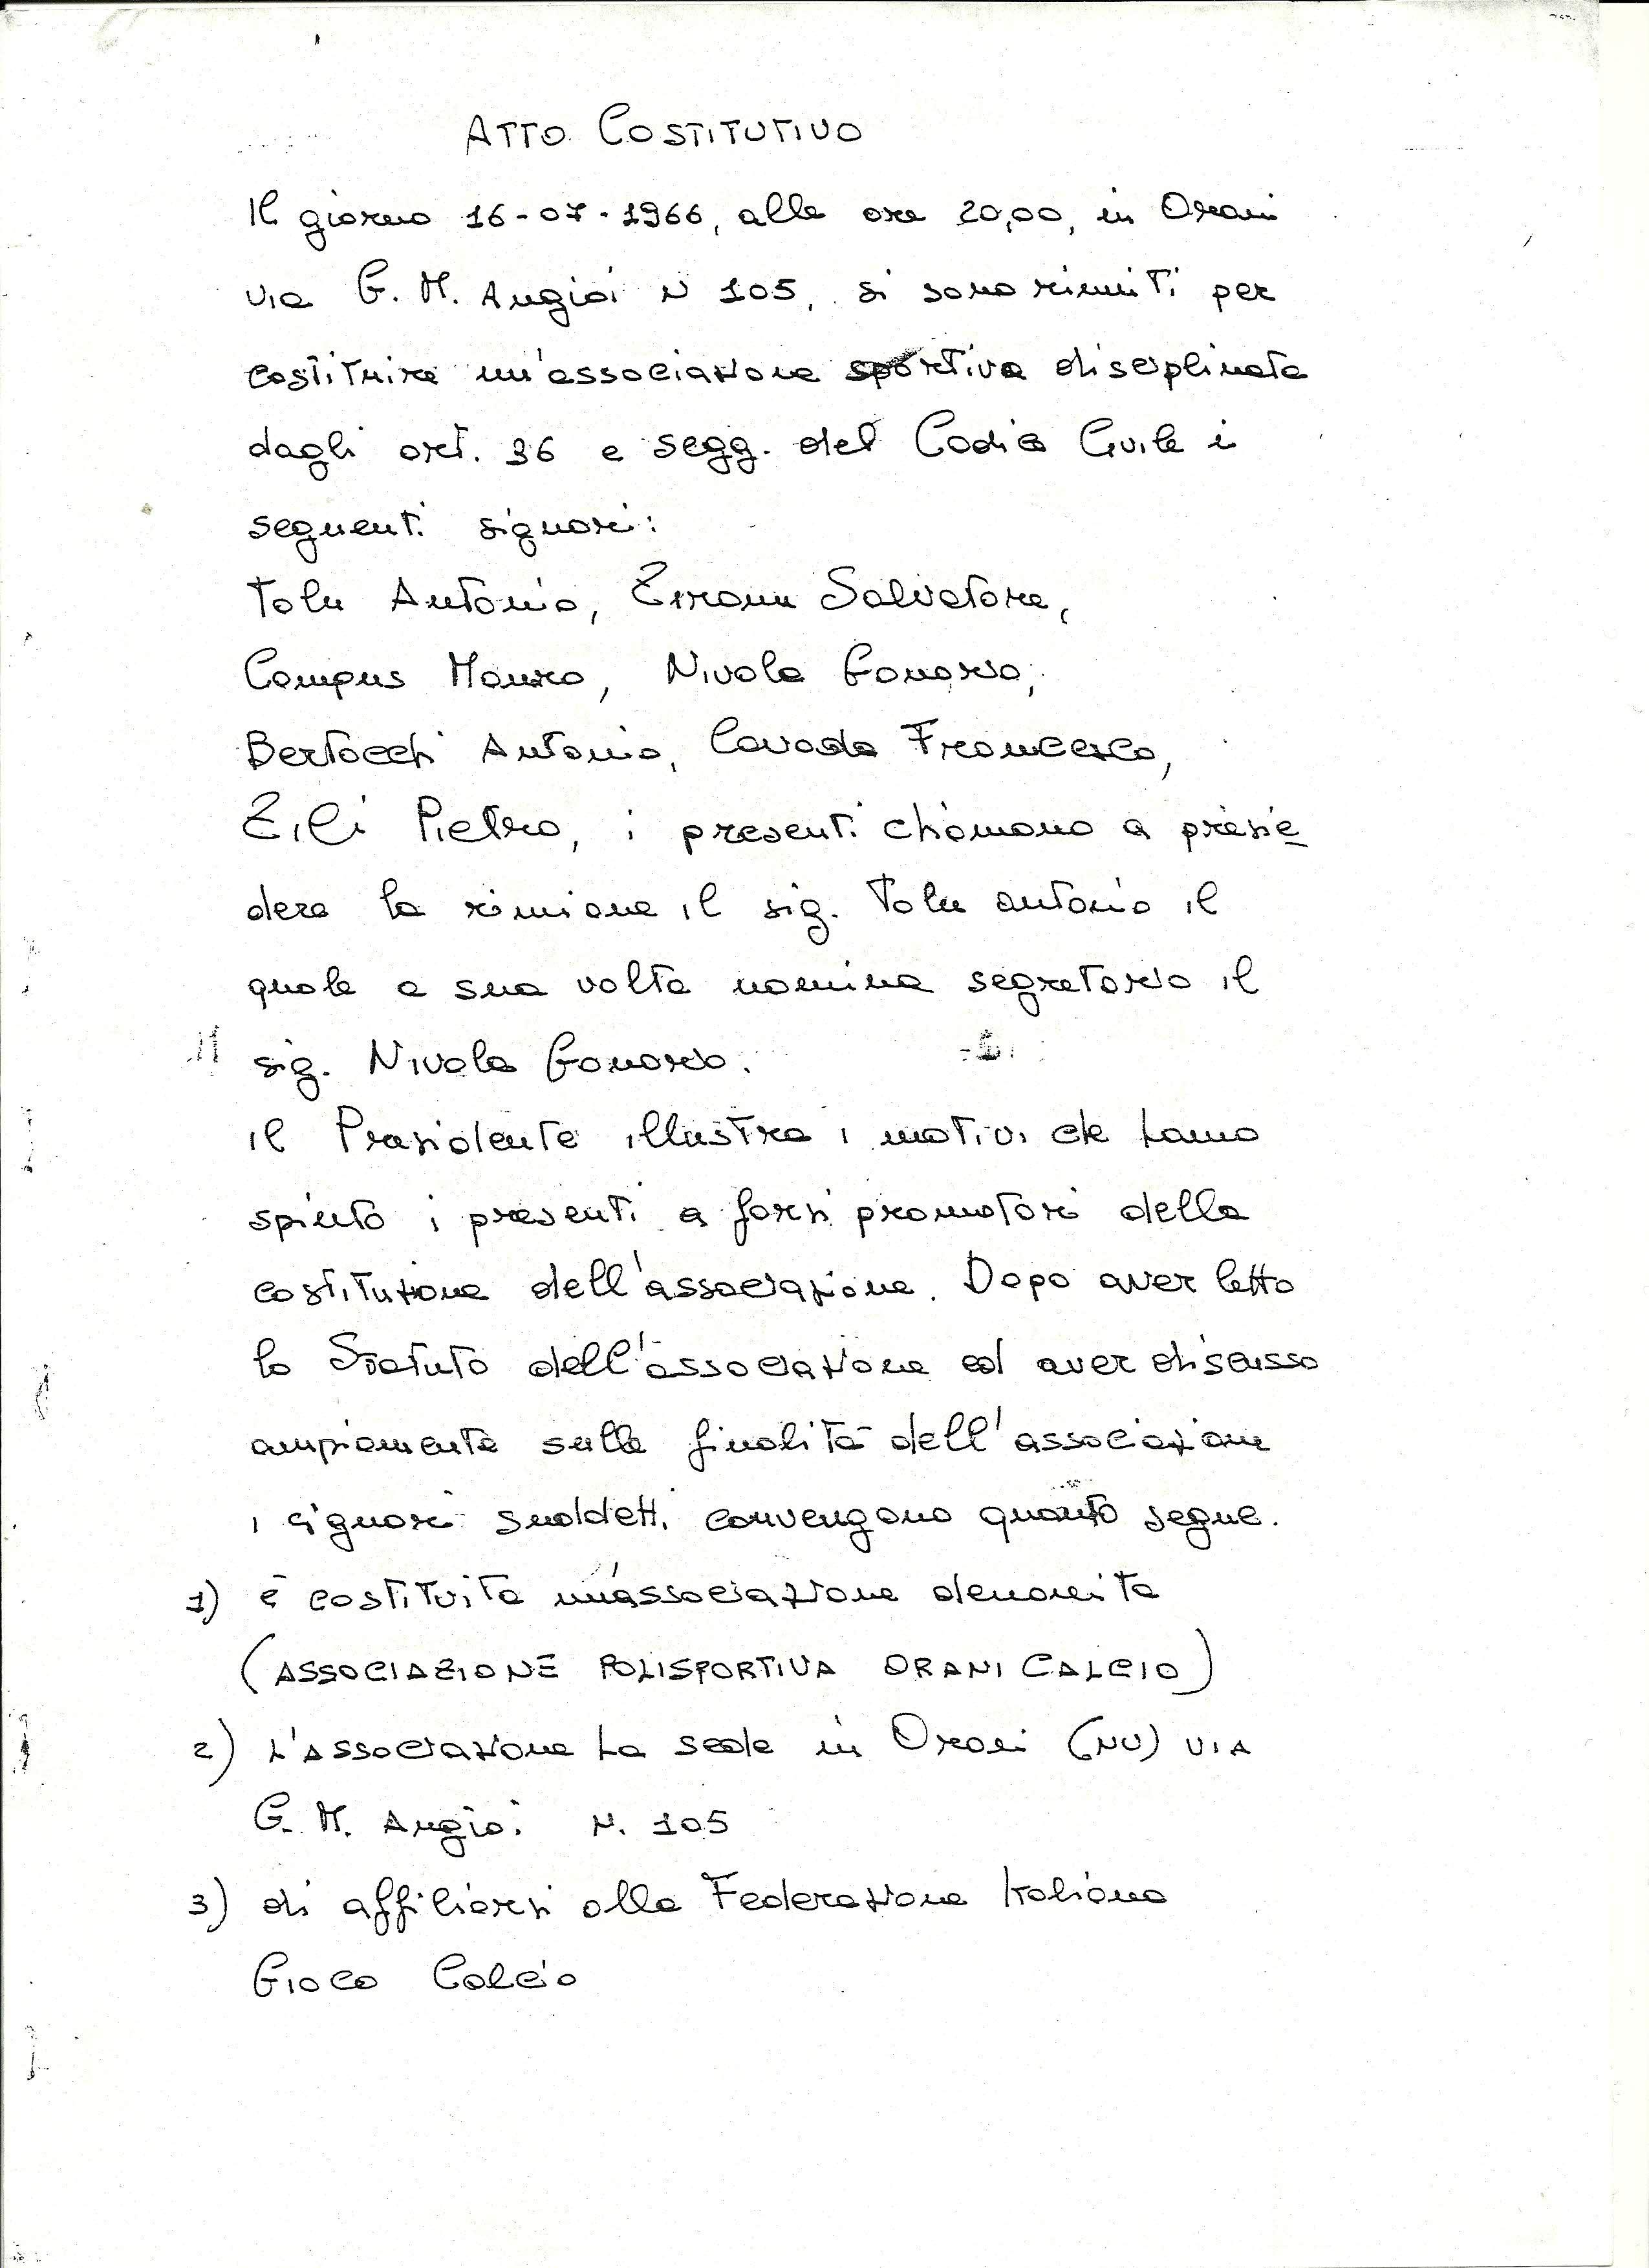 ATTO COSTITUTIVO
Il giorno 16-07-1966, alle ore 20,00, in Orani
via G. M. Angioi N 105, si sono riuniti per
costituire un'associazione sportiva disciplinata
dagli art. 36 e segg. del Codice Civile i
seguenti signori:
Tolu Antonio, Zirann Salvatore,
Campus Mauro, Nivola Gonario,
Bertocchi Antonio, Cavada Francesco,
Zili Pietro, i presenti chiamano a presie
dere la riunione il sig. Tolu Antonio il
quale a sua volta nomina segretario il
sig. Nivola Gonario.
il Presidente illustra i motivi che hanno
spinto i presenti a farsi promotori della
costituzione dell'associazione. Dopo aver letto
lo Statuto dell'associazione ed aver discusso
ampiamente sulla finalità dell'associazione
i signori suddetti convengono quanto segue.
1) è costituita un'associazione denomita
(ASSOCIAZIONE POLISPORTIVA ORANI CALCIO)
2) L'Associazione ha sede in Orani (NU) VIA
G. M. Angioi N. 105
3) di affiliarsi alla Federazione Italiana
Gioco Calcio